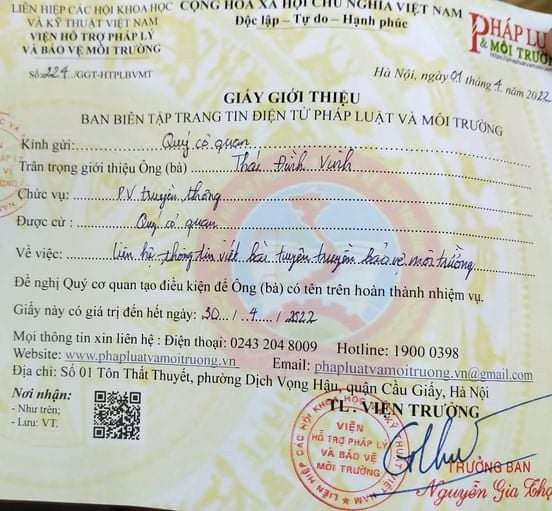 LIÊN HIỆP CÁC HỘI KHOA HỌC
VÀ KỸ THUẬT VIỆT NAM
VIỆN HỖ TRỢ PHÁP LÝ
VÀ BẢO VỆ MÔI TRƯỜNG
Số: 224 /GGT-HTPLBVMT
CỘNG HÒA XÃ HỘI CHỦ NGHĨA VIỆT NAM
Độc lập - Tự do - Hạnh phúc
PHÁP LU
& MÔI TRƯỜN
Hà Nội, ngày 01 tháng 4 năm 2022
GIẤY GIỚI THIỆU
BAN BIÊN TẬP TRANG TIN ĐIỆN TỬ PHÁP LUẬT VÀ MÔI TRƯỜNG
Kính gửi: Quý cơ quan
Trân trọng giới thiệu Ông (bà) Thái Đình Vinh
Chức vụ: PV truyền thông
Được cử : Quý cơ quan
Về việc: Liên hệ thông tin viết bài tuyên truyền bảo vệ môi trường
Đề nghị Quý cơ quan tạo điều kiện để Ông (bà) có tên trên hoàn thành nhiệm vụ.
Giấy này có giá trị đến hết ngày: 30 / 4 / 2022
Mọi thông tin xin liên hệ : Điện thoại: 0243 204 8009 Hotline: 1900 0398
Website: www.phapluatvamoitruong.vn Email: phapluatvamoitruong.vn@gmail.com
Địa chỉ: Số 01 Tôn Thất Thuyết, phường Dịch Vọng Hậu, quận Cầu Giấy, Hà Nội
Nơi nhận:
- Như trên;
- Lưu: VT.
TL. VIỆN TRƯỞNG
LIÊN HIỆP CÁC HỘI KHOA HỌC VÀ KỸ THUẬT VIỆT NAM
VIỆN
HỖ TRỢ PHÁP LÝ
VÀ BẢO VỆ
MÔI TRƯỜNG
TRƯỞNG BAN
Nguyễn Gia Thọ